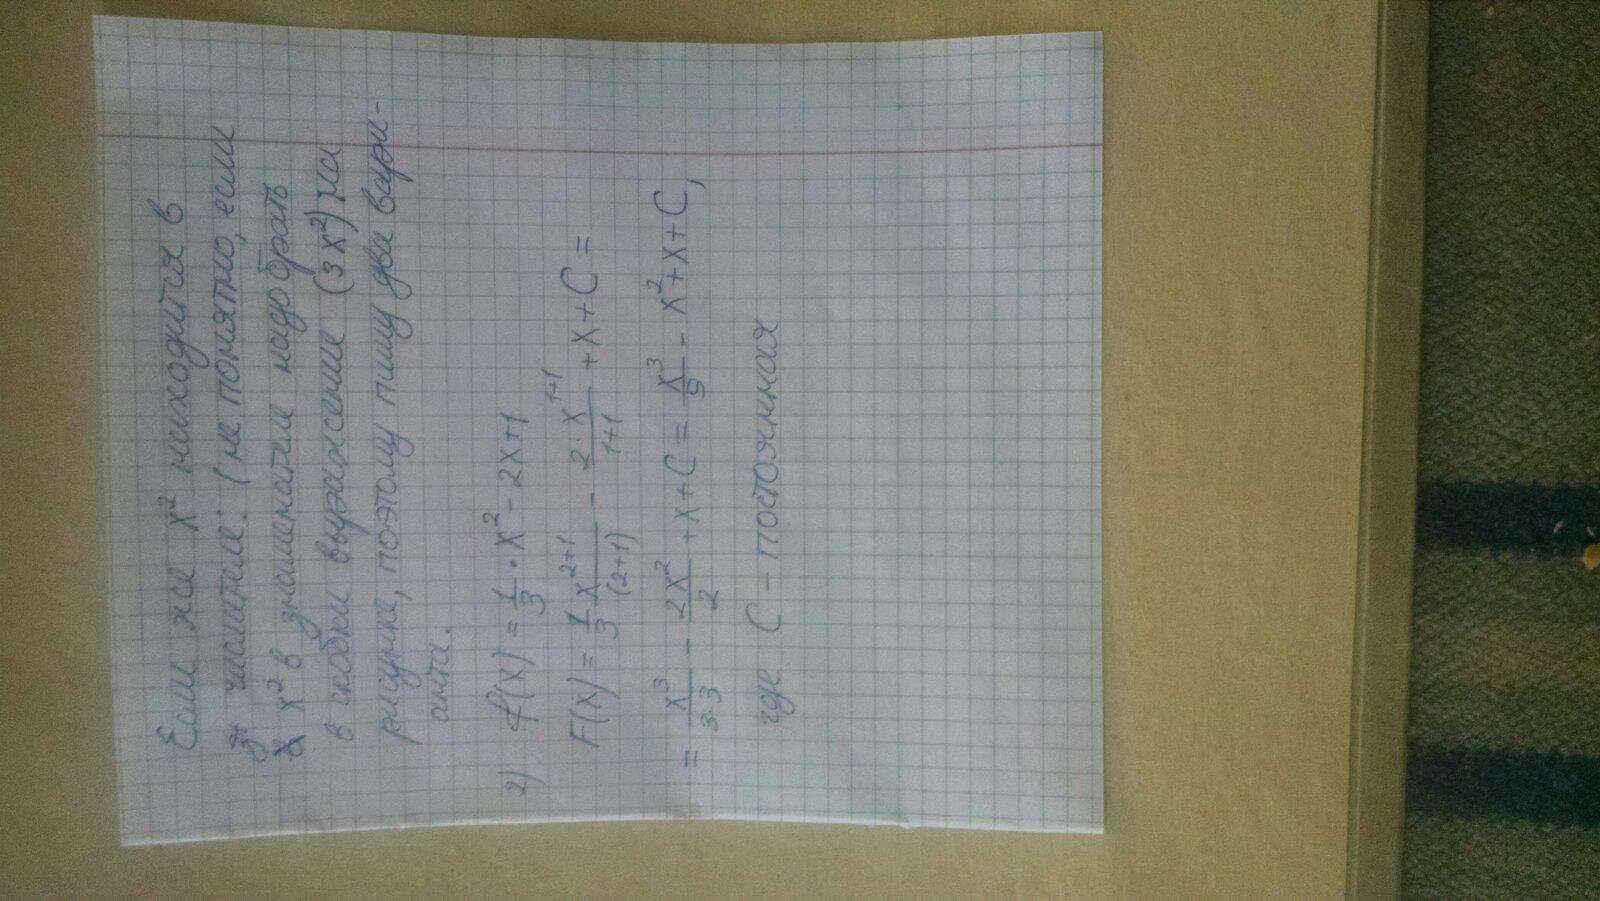 Если же x² находится в
числителе: (не понятно, если
x² в знаменателе надо брать
в скобки выражение (3x²) на
рисунке, поэтому пишу два вари-
анта.
2) f(x) = 1/3 · x² - 2x+1
F(x) = 1/3 x²⁺¹/(2+1) - 2·x¹⁺¹/1+1 + x + C =
= x³/3·3 - 2x²/2 + x + C = x³/9 - x² + x + C,
где C - постоянная